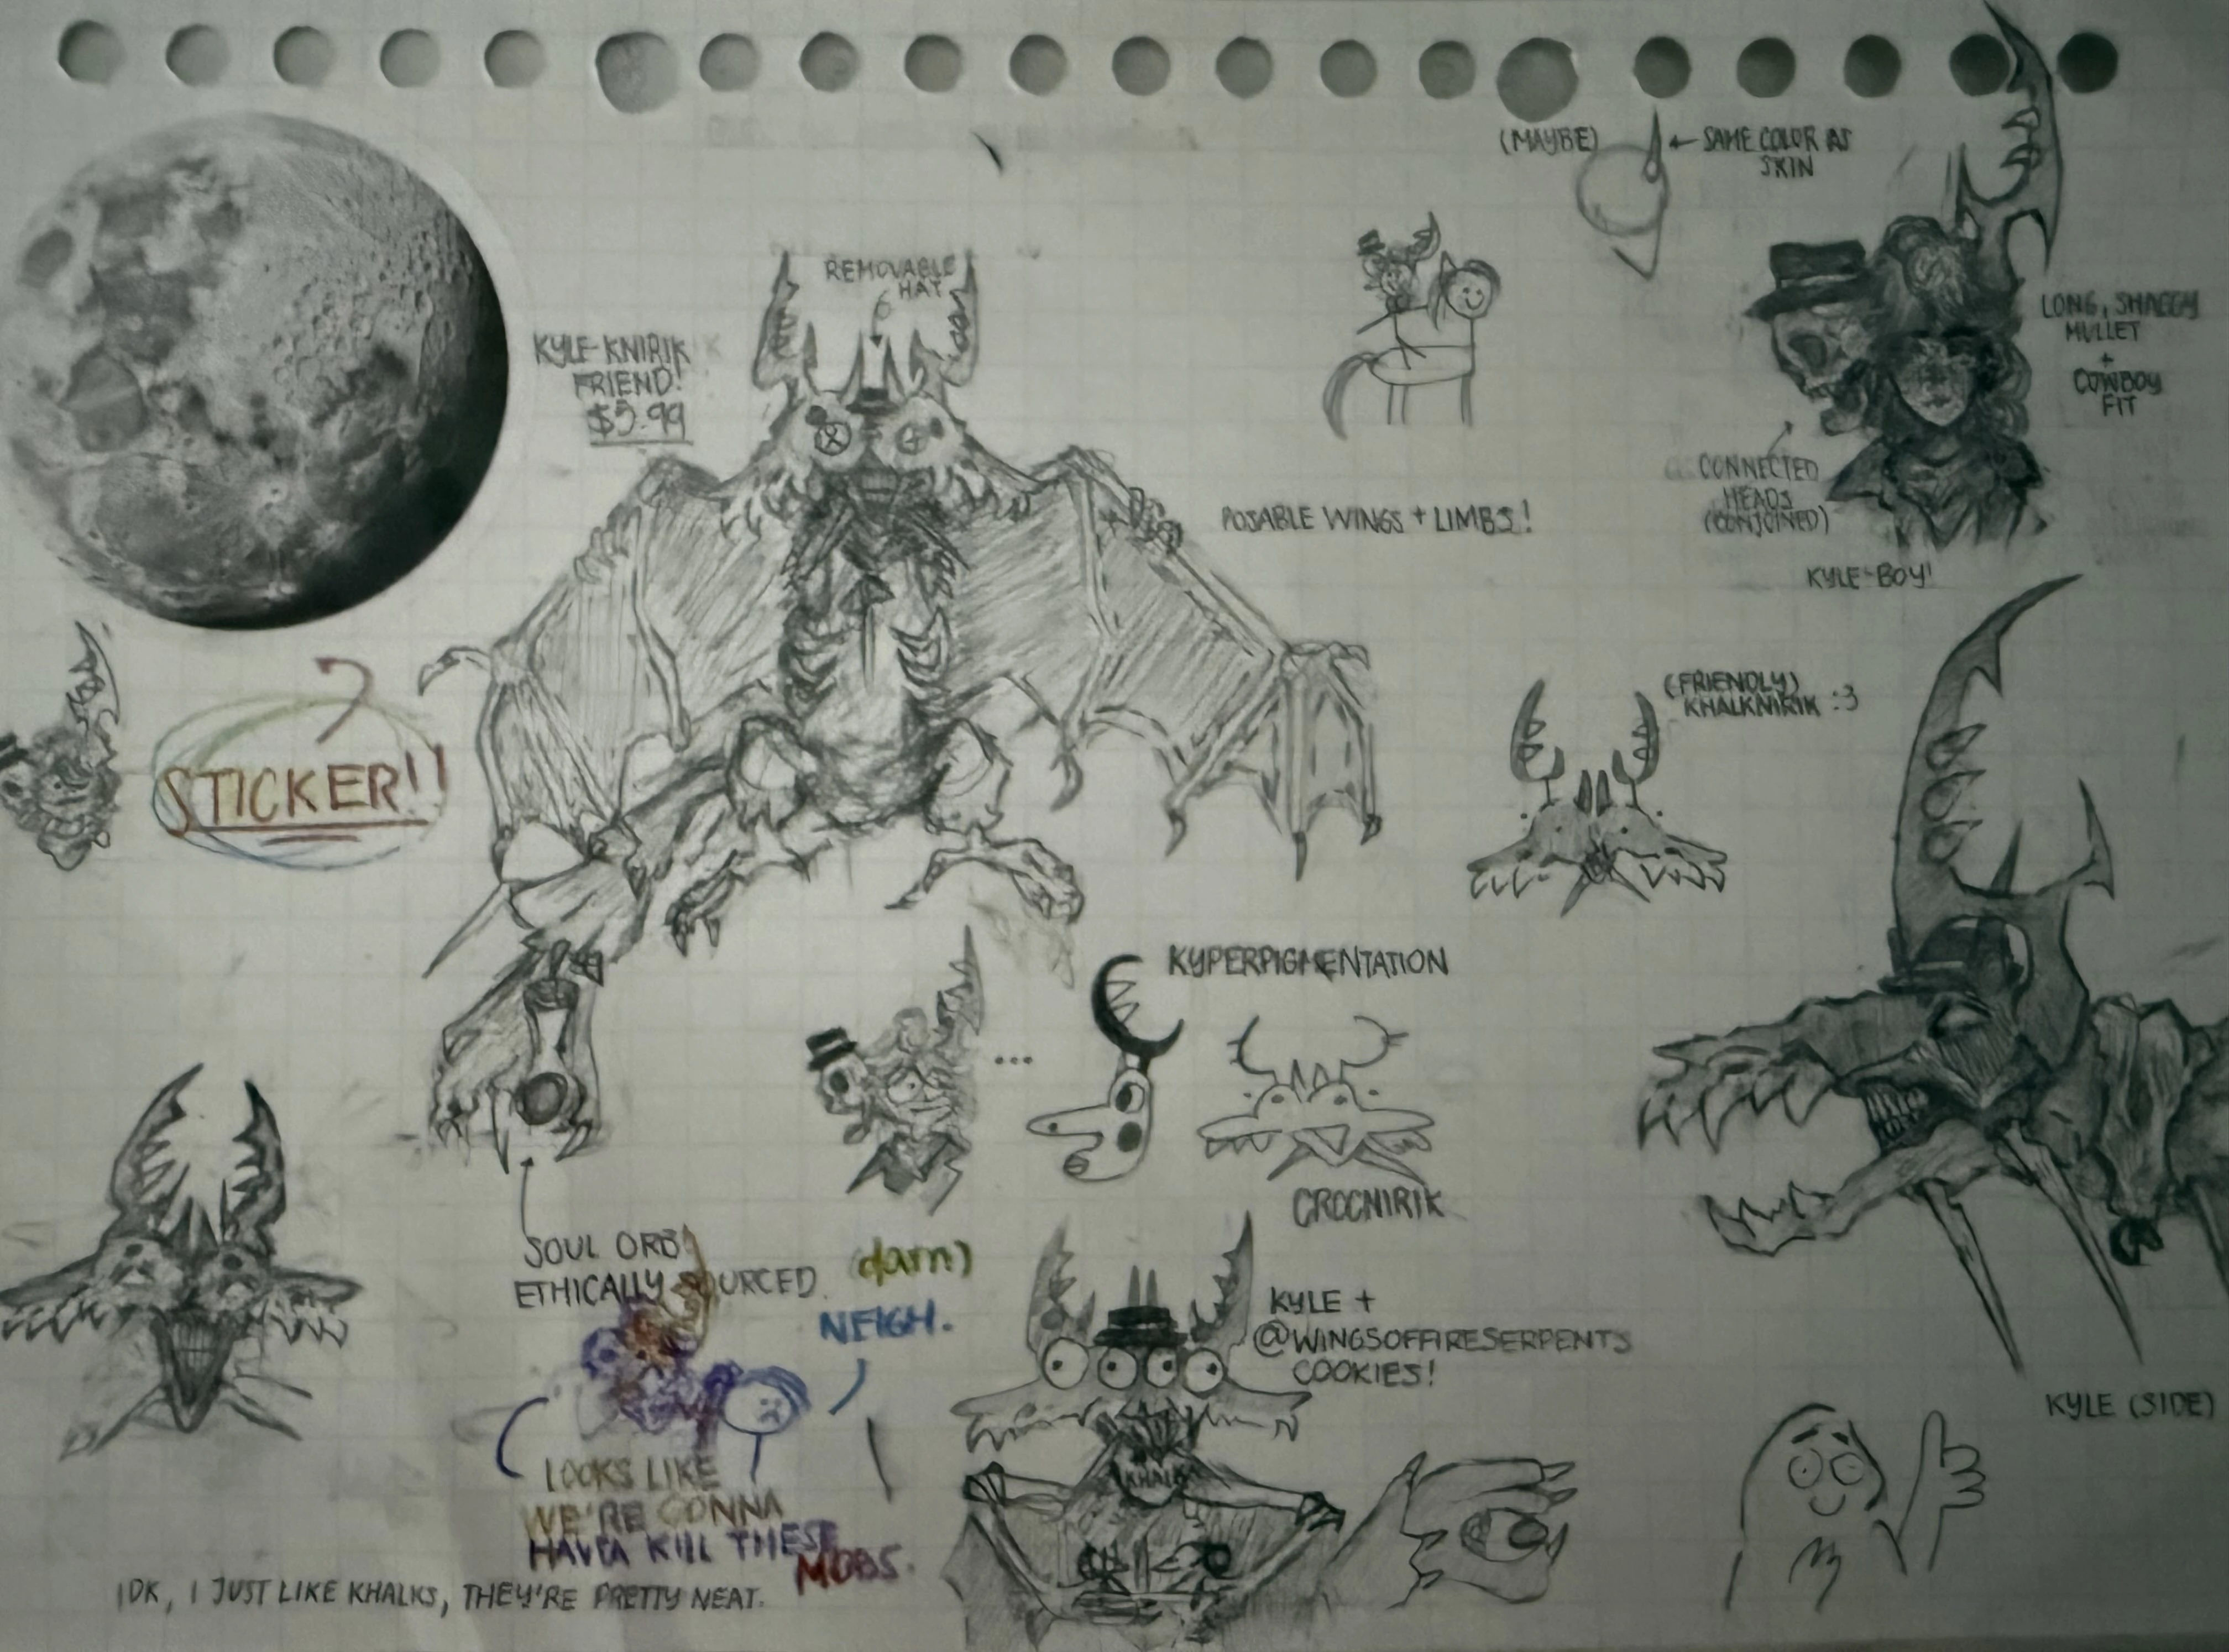 (MAYBE)
← SAME COLOR AS
SKIN
REMOVABLE
HAT
KYLE-KNIRIK
FRIEND!
$5.99
LONG, SHAGGY
MULLET
+
COWBOY
FIT
CONNECTED
HEADS
(CONJOINED)
POSABLE WINGS + LIMBS!
KYLE-BOY!
(FRIENDLY)
KHALKNIRIK :3
STICKER!!
KYPERPIGMENTATION
...
CROCNIRIK
SOUL ORB!
ETHICALLY SOURCED.
(darn)
NEIGH.
KYLE +
@WINGSOFFIRESERPENTS
COOKIES!
KYLE (SIDE)
KHALK
LOOKS LIKE
WE'RE GONNA
HAVTA KILL THESE
MOBS.
IDK, I JUST LIKE KHALKS, THEY'RE PRETTY NEAT.